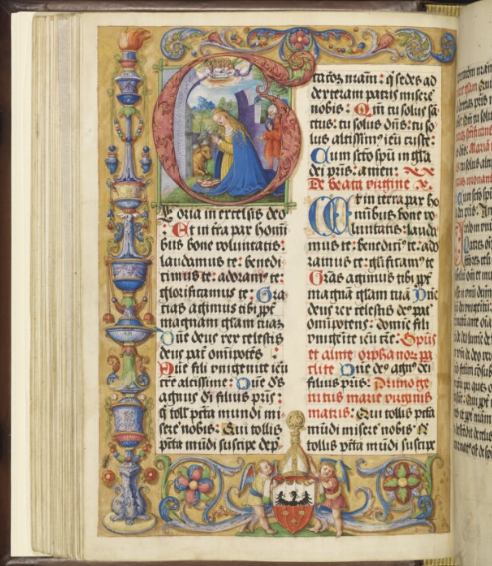 loria in excelsis deo
Et in tr̄a pax homi
bus bone voluntatis:
laudamus te: benedi
cimus te: adoram⁹ te:
glorificamus te: Gra
tias agimus tibi ꝓpt̄
magnam gl̄am tuaꝫ
Dn̄e deus rex celestis
deus pat̄ om̄ipotēs
Dn̄e fili vnigenite ieu
xr̄e altissime: Dn̄e dꝰs
agnus di filius pr̄is:
q̇ toll' pctā mundi mi
sere nobis: Qui tollis
pctā mūdi suscipe dep̄
catiōeꝫ nr̄am: q̇ sedes ad
dexteram patris misere
nobis: Qm̄ tu solus sā
ctus: tu solus dn̄s: tu so
lus altissim⁹ ieu xp̄e:
Cum sctō sp̄u in gl̄ia
dei pr̄is: amen:
De beata virgine
Et in terra pax ho
minibus bone vo
luntatis: lauda
mus te: benedicim⁹ te: ado
ramus te: gl̄ificam⁹ te
Gr̄as agimus tibi ꝓpt̄
magnā gl̄am tuā Dn̄e
deus rex celestis de⁹ pat̄
om̄ipotens: domine fili
vnigenite ieu xr̄e: Sp̄us
et alme orphanoꝝ pa
raclite Dn̄e de⁹ agn⁹ di
filius pr̄is: Primoge
nitus marie virginis
matris: Qui tollis pctā
mūdi misere nobis:
tollis pctā mūdi suscipe